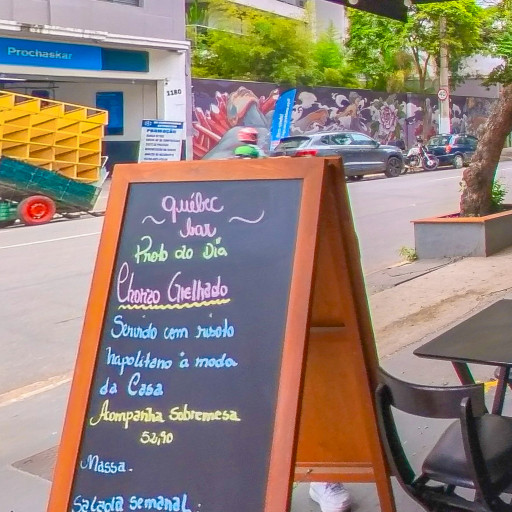 Prochaskar
1180
PROMOÇÃO
québec
bar
Prato do Dia
Chorizo Grelhado
Servido com risoto
napolitano à moda
da Casa
Acompanha Sobremesa
52,90
Massa.
Salada semanal.